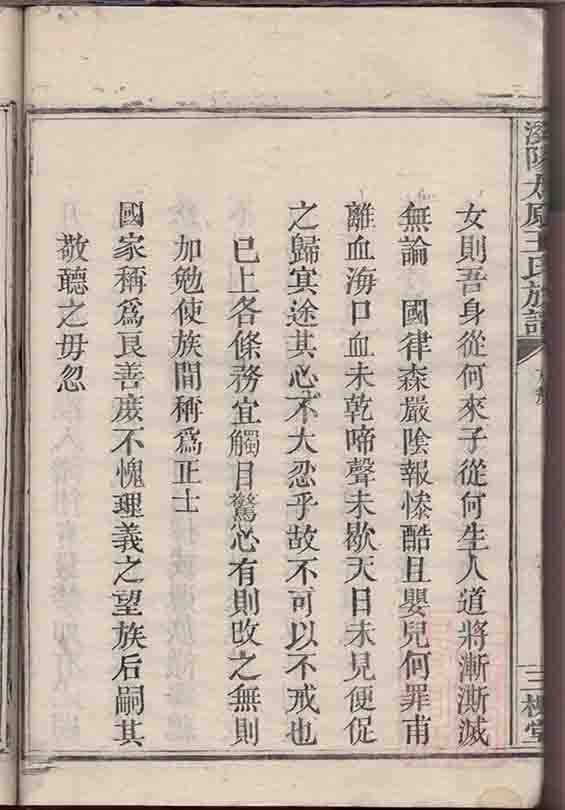 溪陽太原王氏族譜
三槐堂
女則吾身從何來子從何生人道將漸澌滅
無論　國律森嚴陰報慘酷且嬰兒何罪甫
離血海口血未乾啼聲未歇天日未見便促
之歸冥途其心不大忍乎故不可以不戒也
已上各條務宜觸目驚心有則改之無則
加勉使族間稱爲正士
國家稱爲良善庶不愧理義之望族后嗣其
敬聽之毋忽